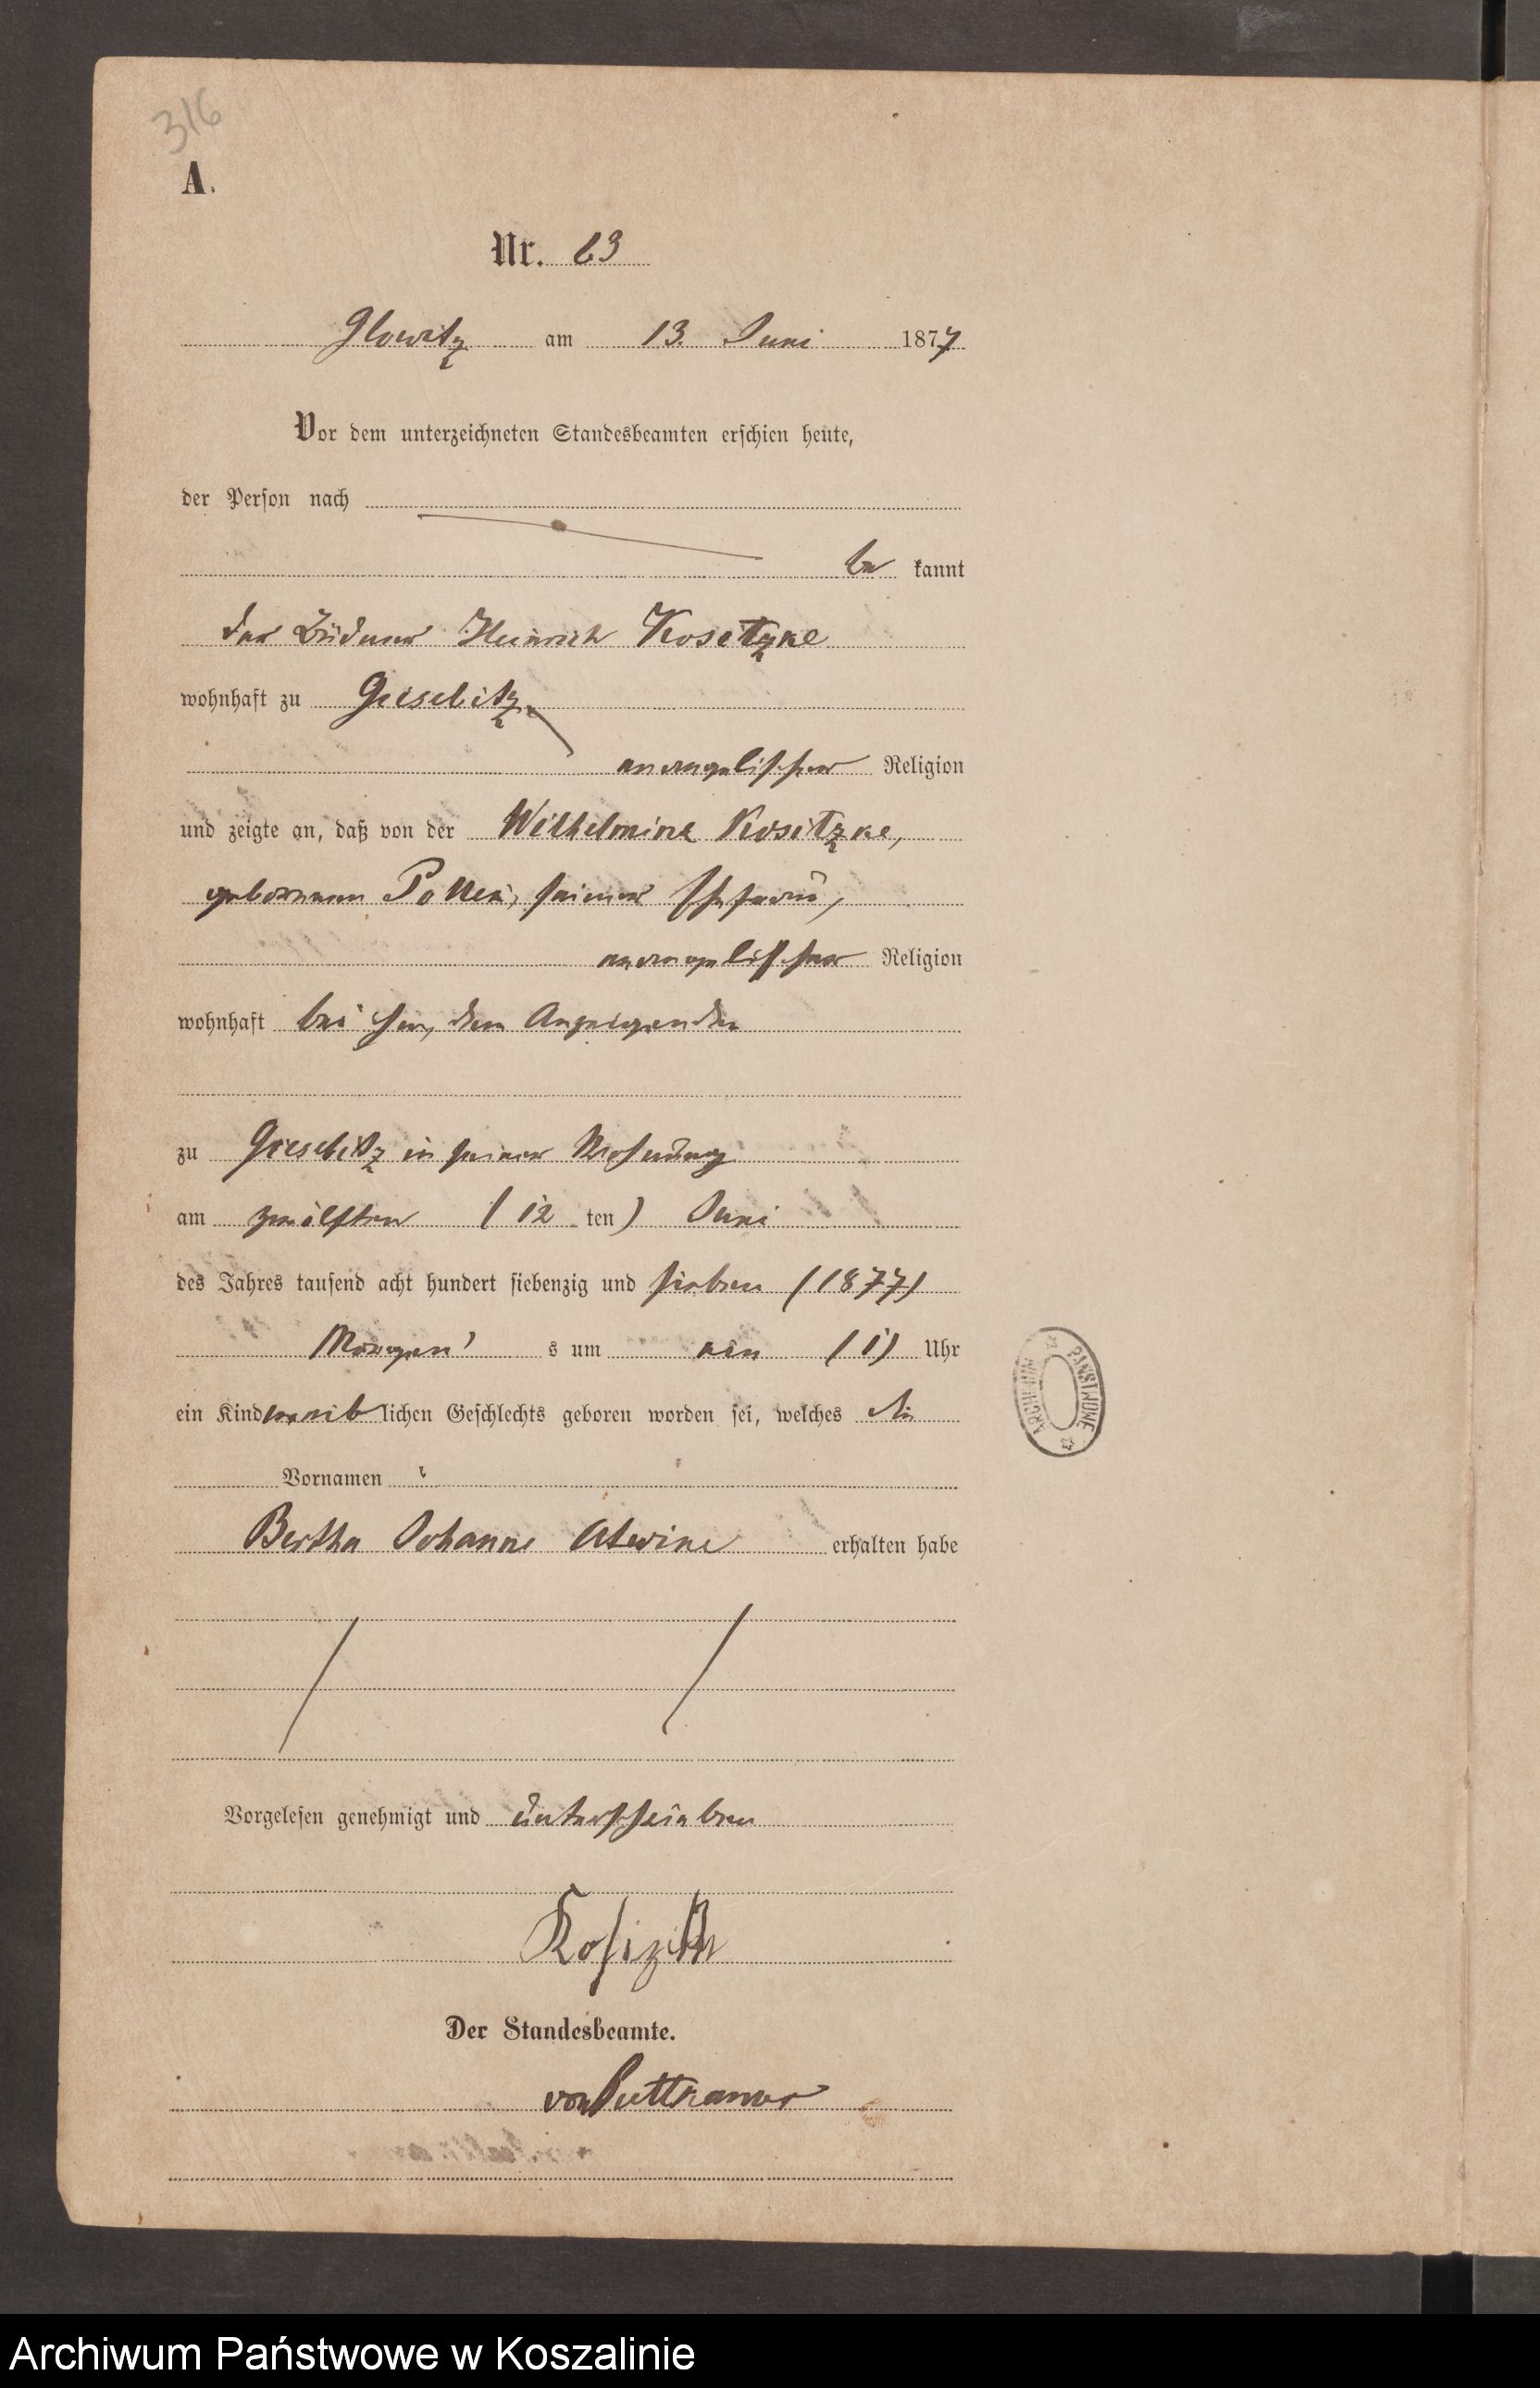 316
A.
Nr. 63
Glowitz am 13. Juni 1877
Vor dem unterzeichneten Standesbeamten erschien heute,
der Person nach
be kannt
der Büdner Heinrich Kositzke
wohnhaft zu Gieselitz
evangelischer Religion
und zeigte an, daß von der Wilhelmine Kositzke,
geborenen seiner Ehefrau,
evangelischer Religion
wohnhaft bei ihm, dem Anzeigenden
zu Gieselitz in seiner Wohnung
am zwölften (12 ten) Juni
des Jahres tausend acht hundert siebenzig und sieben (1877)
Morgen s um ein (1) Uhr
ein Kind weib lichen Geschlechts geboren worden sei, welches die
Vornamen
Bertha Johanne Alwine erhalten habe
Vorgelesen genehmigt und unterschrieben
Der Standesbeamte.
von Puttkamer
ARCHIWUM PAŃSTWOWE
Archiwum Państwowe w Koszalinie